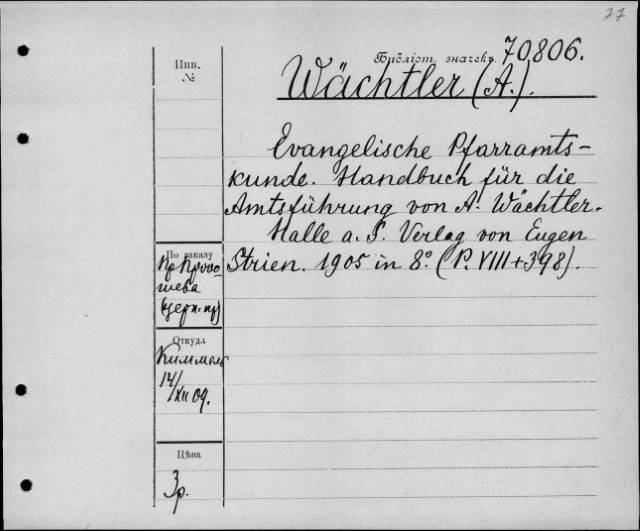 77
Инв.
№
Библіот. значекъ. 70806.
Wächtler (A.).
Evangelische Pfarramts-
kunde. Handbuch für die
Amtsführung von A. Wächtler.
Halle a. S. Verlag von Eugen
Strien. 1905 in 8º. (P. VIII+398).
По заказу
Откуда
Киммель
14/XII 09.
Цѣна
3 р.